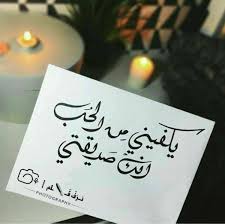 يكفيني مِن الحُب
انك صَديقتي
PHOTOGRAPHY